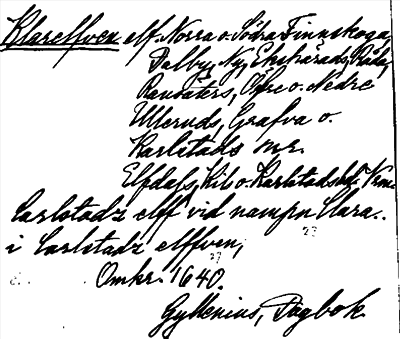 Klarelfven elf. Norra o. Södra Finnskoga,
Dalby, Ny, Ekshärads, Råda,
Ransäters, Öfre o. Nedre
Ulleruds, Grafva o.
Karlstads snr.
Elfdals, Kils o. Karlstads hd. Vrm.
Carlstadz elff vid nampn Clara..
i Carlstadz elffven,
Omkr. 1640.
Gyllenius, Dagbok